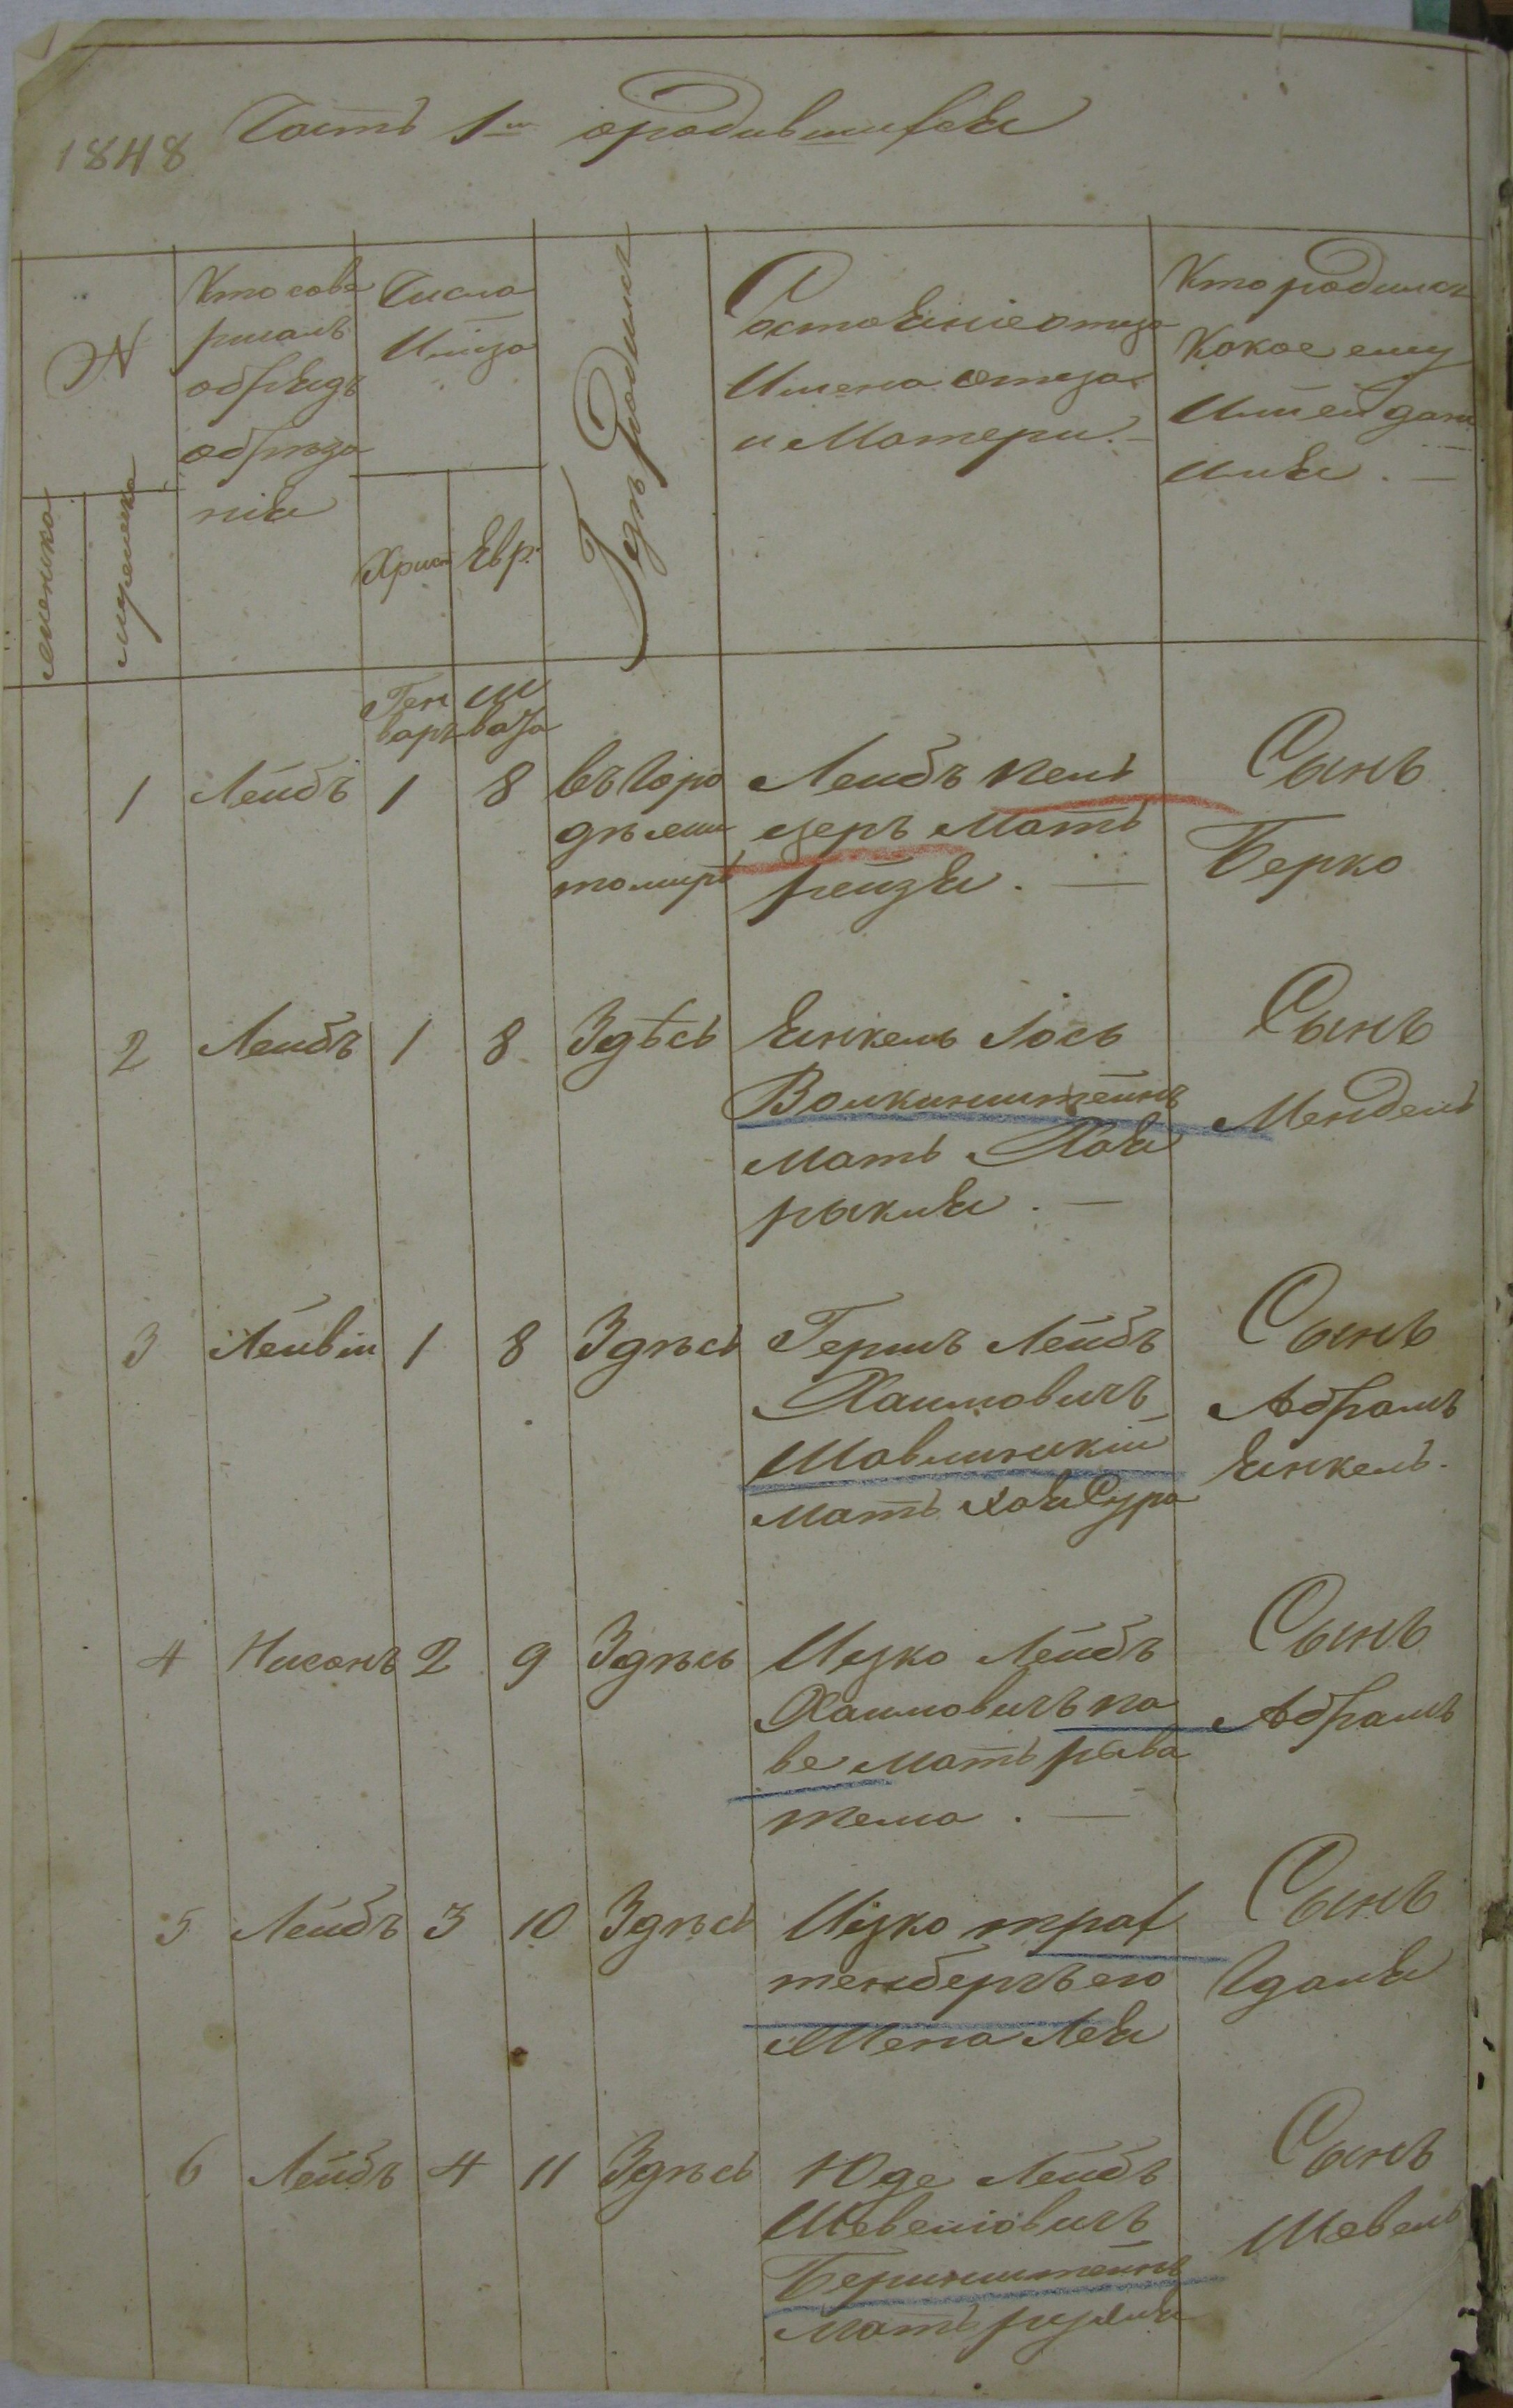 1848 Часть 1я ородившихся
№
женска
мужеска
Кто сове
ршалъ
обрядъ
обреза
нія
Числа
Имца
Христ
Евр.
Где родился
Состояніе отца
Имена отца
и Матери. —
Кто родился
Какое ему
Или ей дано
имя. —
Ген
варь
Ш
вата
1 Лейбъ 1 8
въ горо
де жи
томире
Лейбъ пель
церъ Мать
рейзя. —
Сынъ
Берко
2 Лейбъ 1 8 Здѣсь
Янкель Іось
Волкинштейнъ
Мать Хая
рыкля. —
Сынъ
Мендель
3 Лейві 1 8 Здесь
Гершъ Лейбъ
Хаимовичъ
Мать хая Сура
Сынъ
Абрамъ
Янкель.
4 Нисонъ 2 9 Здесь
Ицко Лейбъ
Хаимовичъ па
ве Мать рыва
тема. —
Сынъ
Абрамъ
5 Лейбъ 3 10 Здесь
Ицко трах
тенбергъ его
Жена Лея
Сынъ
Гдаля
6 Лейбъ 4 11 Здесь
Юде Лейбъ
Шевеліовичъ
Беринштейнъ
Мать рухля
Сынъ
Шевель